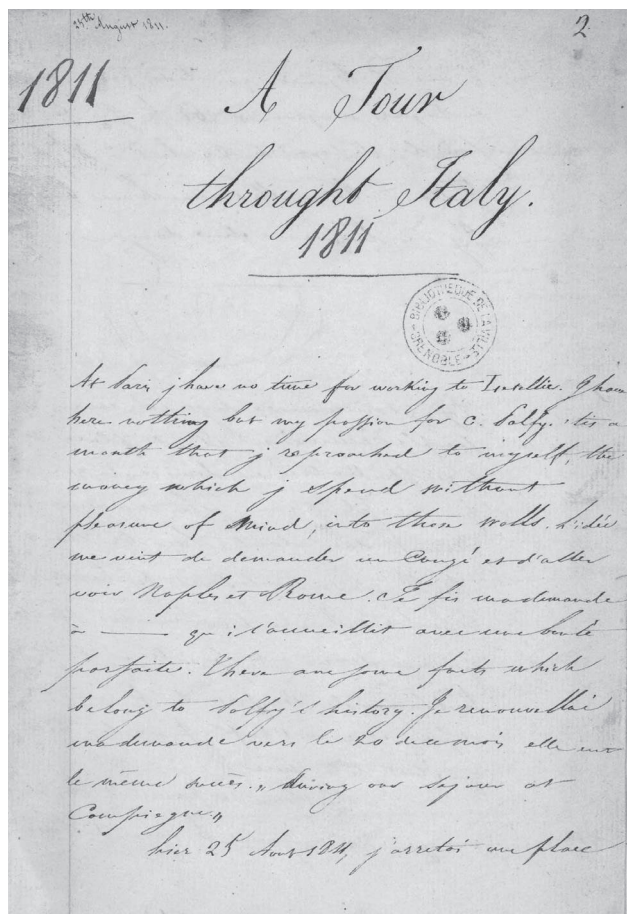 25th August 1811.
2
1811
A Tour
throught Italy.
1811
BIBLIOTHEQUE DE LA VILLE
GRENOBLE
At Paris j have no time for working to Letellier. J have
here nothing but my passion for c. Palfy. 'tis a
month that j reproached to myself, the
money which j spend without
pleasure of mind, into those walls. L'idée
me vint de demander un Congé et d'aller
voir Naples et Rome. Je fis ma demande
à ——— qui l'accueillit avec une bonté
parfaite. There are some facts which
belong to Palfy's history. Je renouvellai
ma demande vers le 20 de ce mois elle eut
le même succès. „ during our sejour at
Compiegne „
hier 25 Aout 1811, j'arretai une place